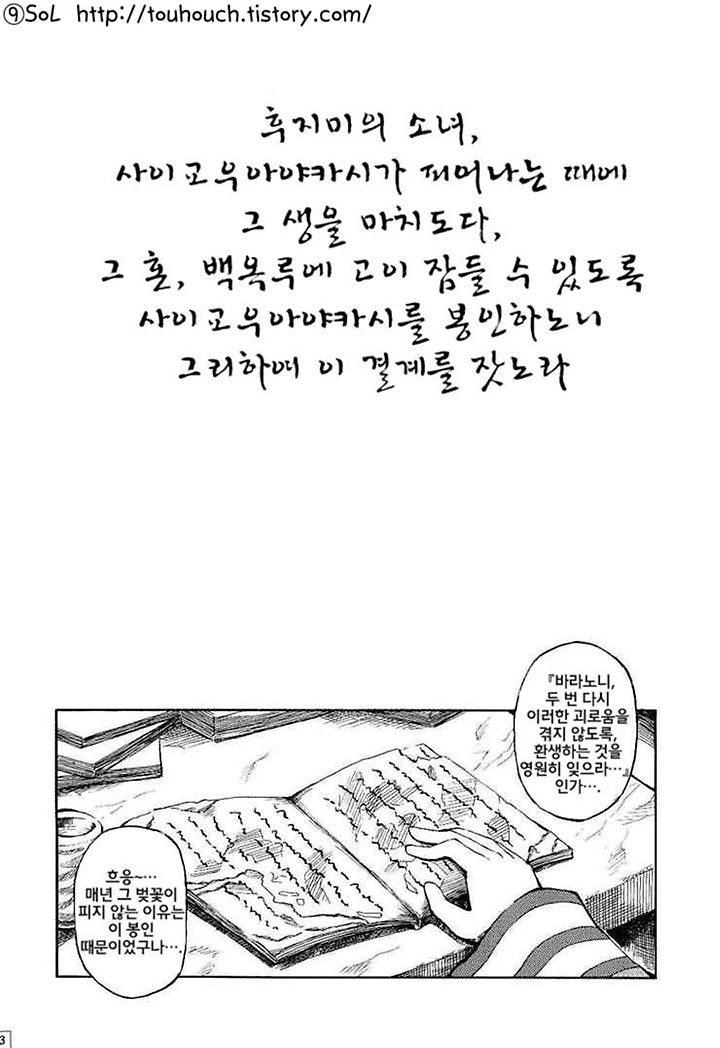 ⑨SoL http://touhouch.tistory.com/
후지미의 소녀,
사이교우아야카시가 피어나는 때에
그 생을 마치도다,
그 혼, 백옥루에 고이 잠들 수 있도록
사이교우아야카시를 봉인하노니
그리하여 이 결계를 잣노라
『바라노니,
두 번 다시
이러한 괴로움을
겪지 않도록,
환생하는 것을
영원히 잊으라…』
인가….
흐응~…
매년 그 벚꽃이
피지 않는 이유는
이 봉인
때문이었구나….
3